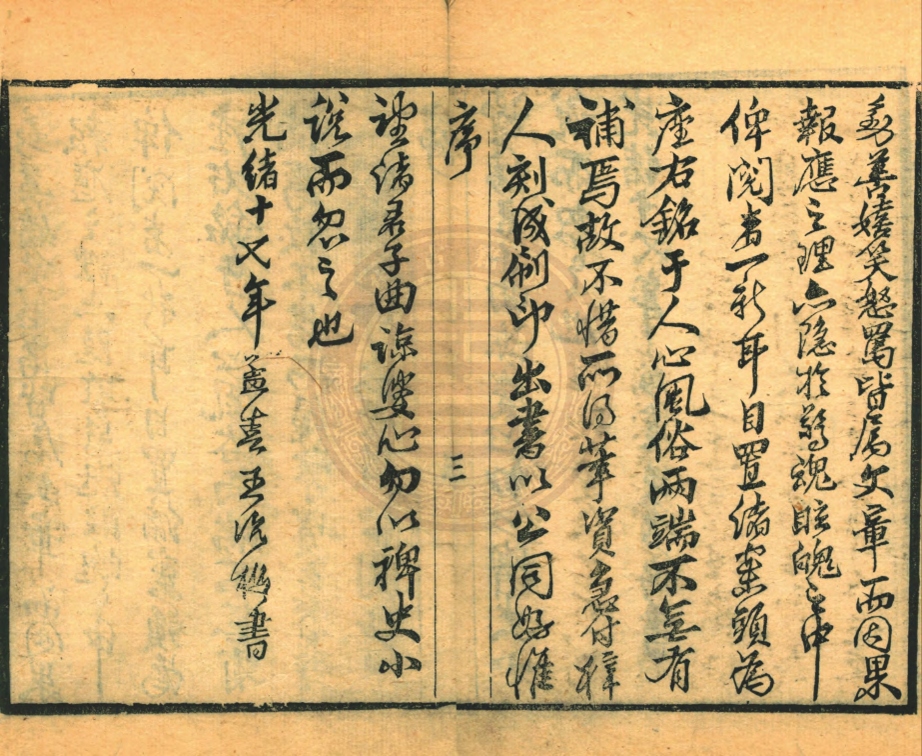 善嬉笑怒罵皆屬文章而因果
報應之理亦隱於驚魂眩魄之中
俾閱者一新耳目置諸案頭為
座右銘于人心風俗兩端不無有
補焉故不惜所得筆資急付梓
人刻成刷印出書以公同好惟
序
三
望諸君子曲諒婆心勿以稗史小
說而忽之也
光緒十七年孟春王冶梅書